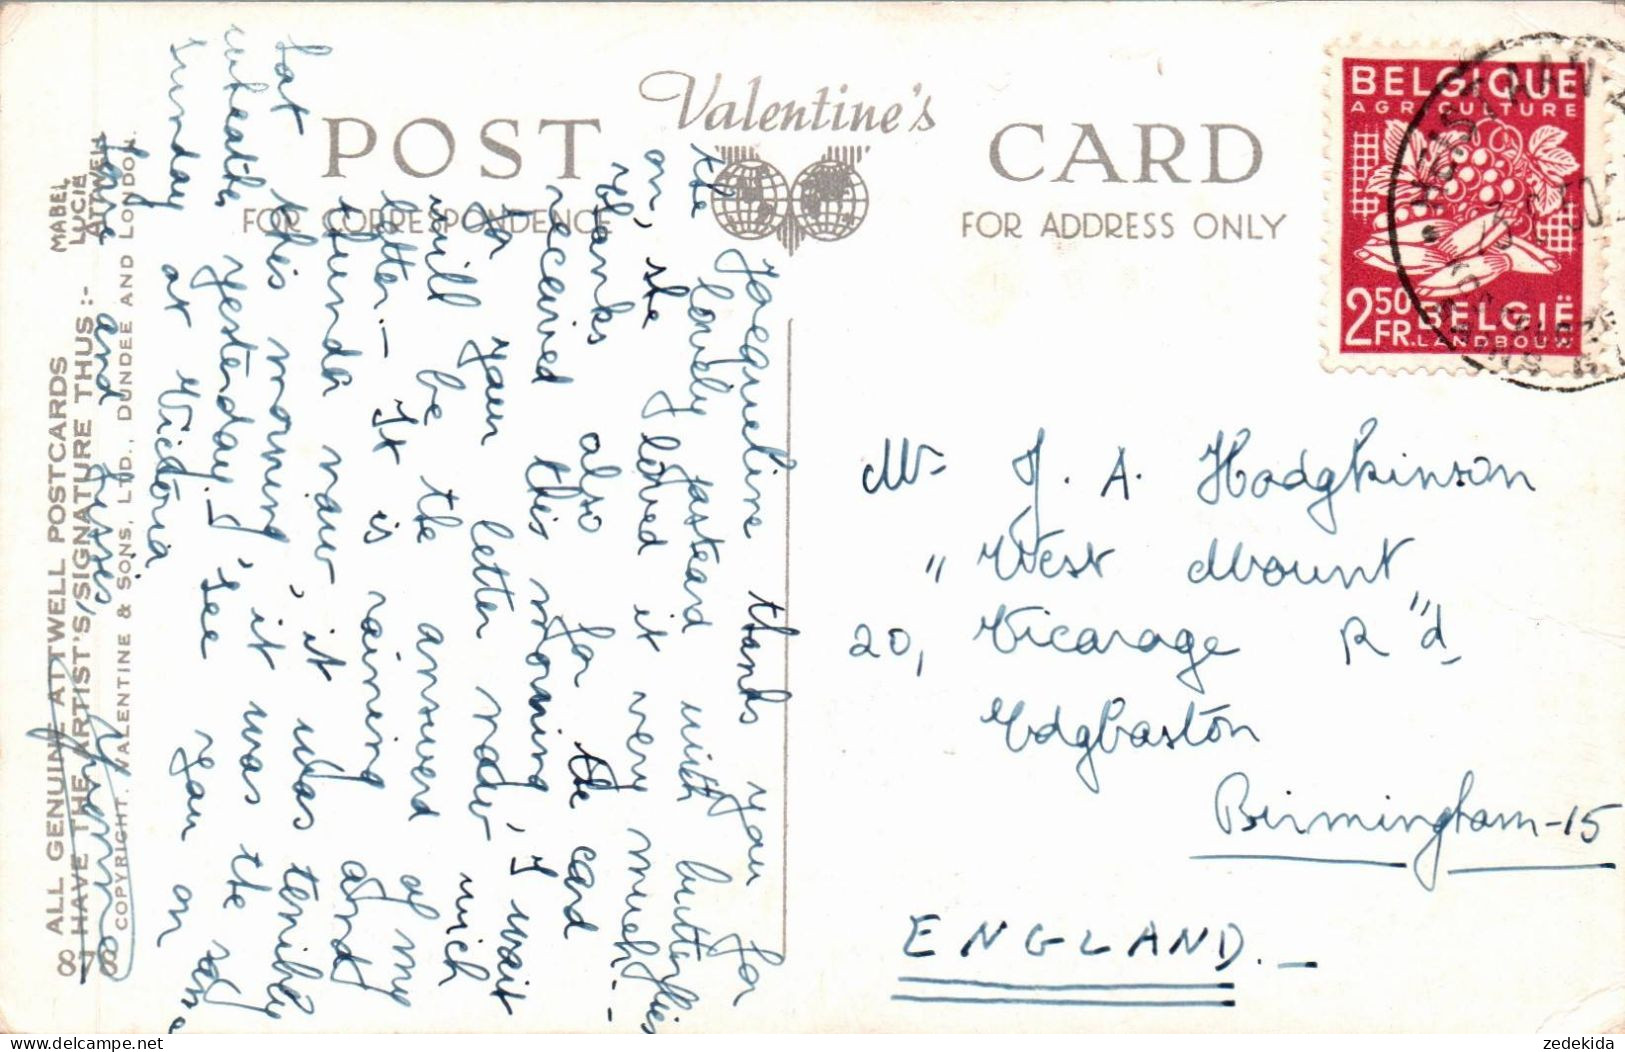 POST
Valentine's
CARD
FOR CORRESPONDENCE
FOR ADDRESS ONLY
BELGIQUE
AGRICULTURE
2.50
FR.
BELGIË
LANDBOUW
Jacqueline thanks you for
the lovely postcard with butterflies
on, she loved it very much.-
Thanks also for the card
received this morning, I wait
for your letter now wich
will be the answerd of my
letter.- It is raining and
thunder now, it was terribly
hot this morning, it was the same
wheater yesterday.- I'see you on
sunday at Victoria
love and kisses
MABEL
LUCIE
ATTWELL
ALL GENUINE ATTWELL POSTCARDS
HAVE THE ARTIST'S SIGNATURE THUS :-
COPYRIGHT. VALENTINE & SONS, LTD., DUNDEE AND LONDON.
Mr J. A. Hodgkinson
" West Mount "
20, Vicarage Rd
Edgbaston
Birmingham-15
ENGLAND.-
zedekida